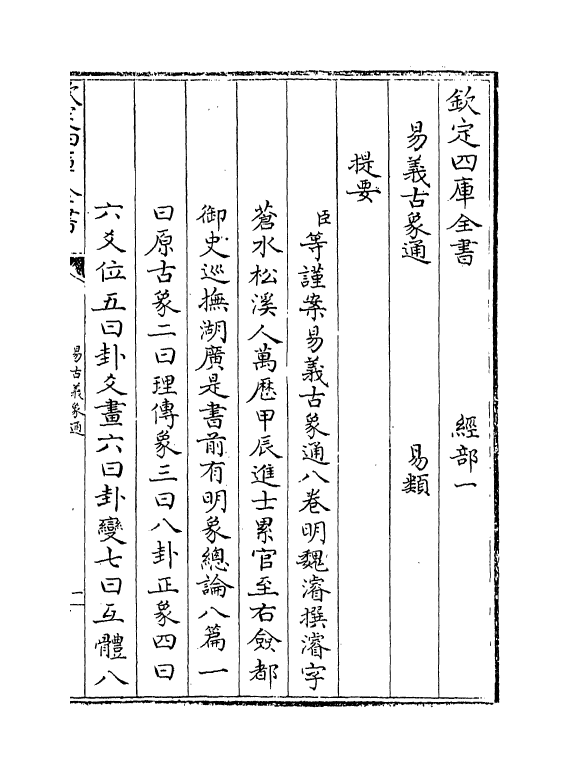 欽定四庫全書　經部一
易義古象通　易類
提要
臣等謹案易義古象通八卷明魏濬撰濬字
蒼水松溪人萬歷甲辰進士累官至右僉都
御史巡撫湖廣是書前有明象總論八篇一
曰原古象二曰理傳象三曰八卦正象四曰
六爻位五曰卦爻畫六曰卦變七曰互體八
欽定四庫全書
易古義象通